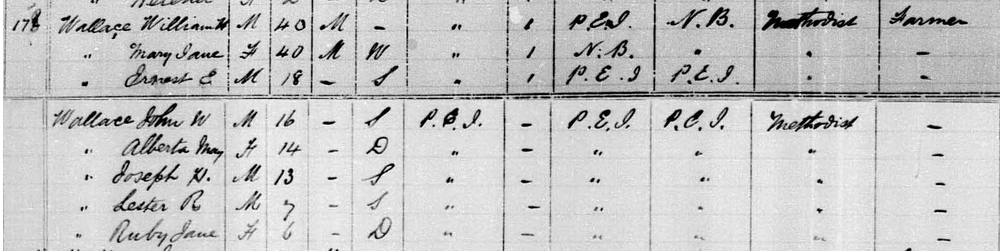 178 Wallace William H M 40 M - " 1 P.E.I. N.B. Methodist Farmer
" Mary Jane F 40 M W " 1 N.B. " " -
" Ernest E M 18 - S " 1 P.E.I P.E.I. " -
Wallace John W M 16 - S P.E.I. - P.E.I. P.E.I. Methodist -
" Alberta May F 14 - D " - " " " -
" Joseph H. M 13 - S " - " " " -
" Lester R M 7 - S " - " " " -
" Ruby Jane F 6 - D " - " " " -